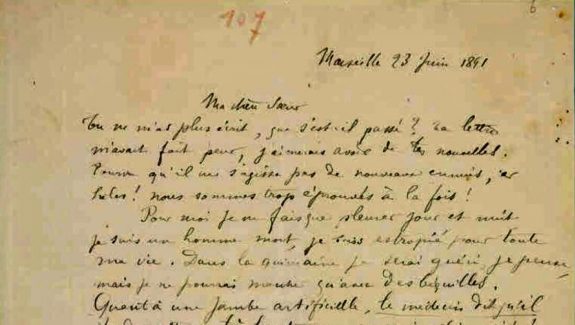 107
6
Marseille 23 Juin 1891
Ma chère Soeur
Tu ne m'as plus écrit, que s'est-il passé? Ta lettre
m'avait fait peur, j'aimerais avoir de tes nouvelles.
Pourvu qu'il ne s'agisse pas de nouveaux ennuis, car
hélas! nous sommes trop éprouvés à la fois!
Pour moi je ne fais que pleurer jour et nuit
je suis un homme mort, je suis estropié pour toute
ma vie. Dans la quinzaine je serai guéri, je pense,
mais je ne pourrai marcher qu'avec des béquilles.
Quant à une jambe artificielle, le médecin dit qu'il